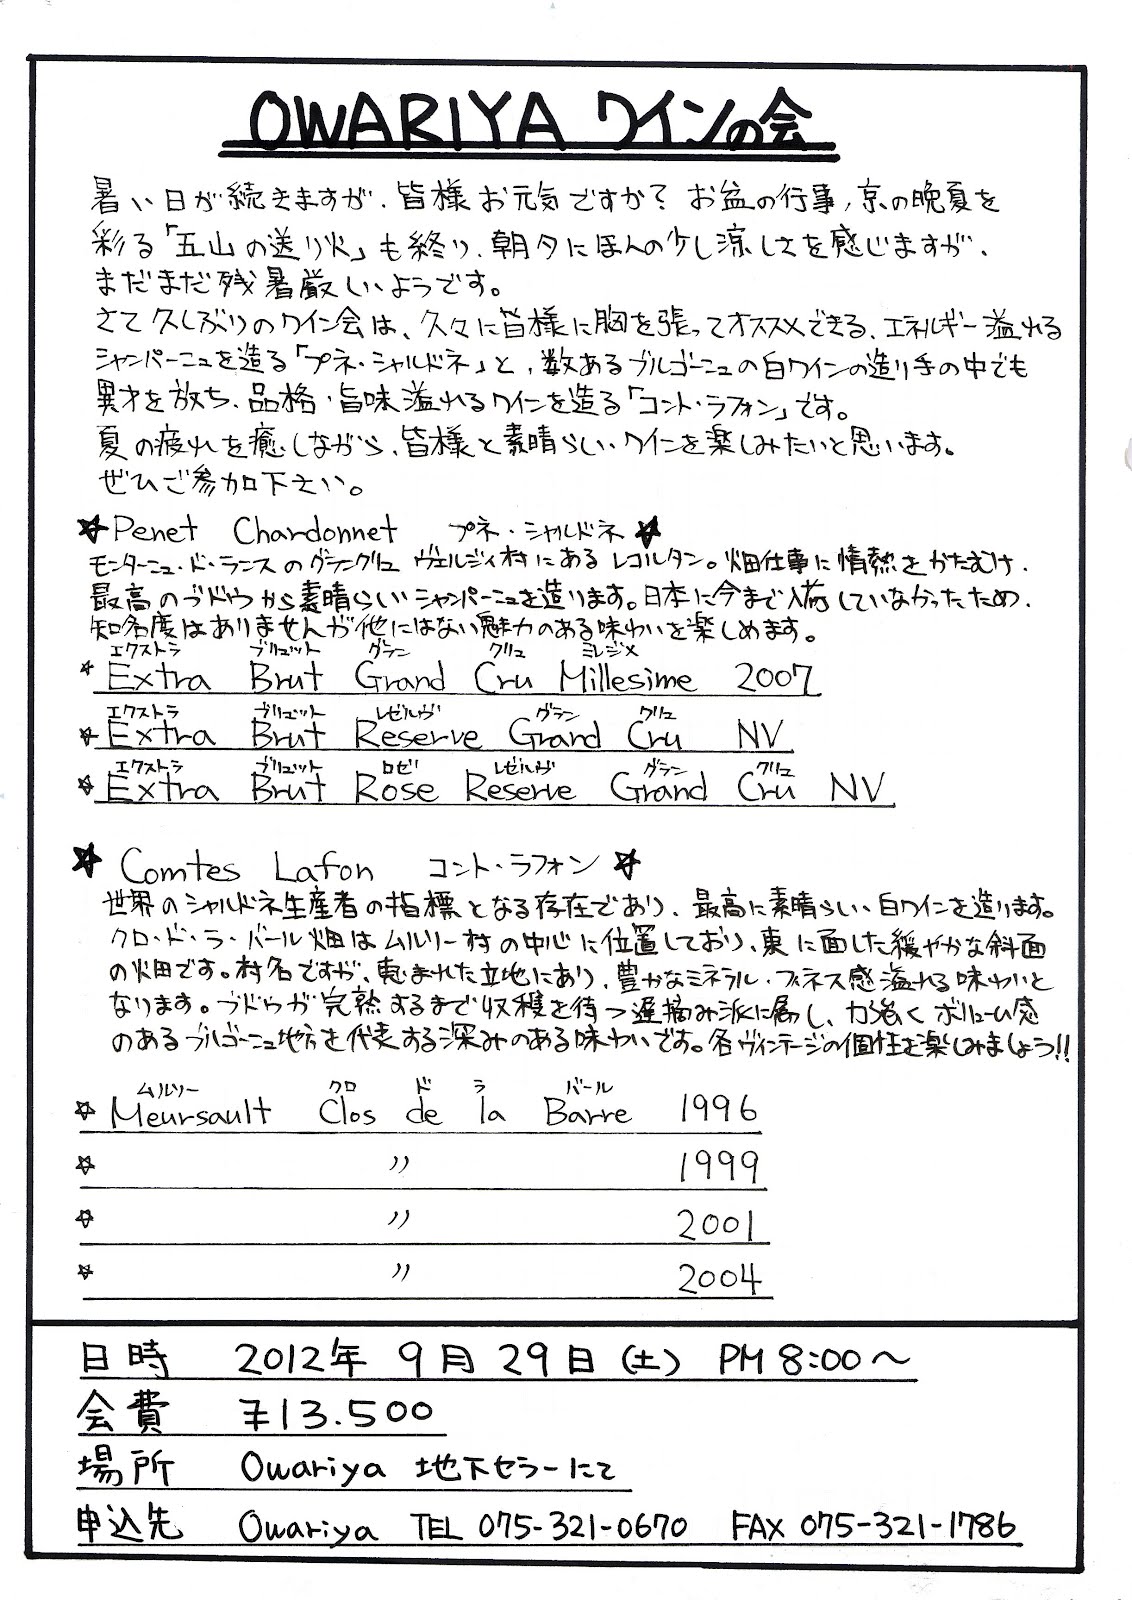 OWARIYA ワインの会
暑い日が続きますが、皆様お元気ですか? お盆の行事、京の晩夏を
彩る「五山の送り火」も終り、朝夕にほんの少し涼しさを感じますが、
まだまだ残暑厳しいようです。
さて久しぶりのワイン会は、久々に皆様に胸を張ってオススメできる、エネルギー溢れる
シャンパーニュを造る「プネ・シャルドネ」と、数あるブルゴーニュの白ワインの造り手の中でも
異才を放ち、品格・旨味溢れるワインを造る「コント・ラフォン」です。
夏の疲れを癒しながら、皆様と素晴らしいワインを楽しみたいと思います。
ぜひご参加下さい。
★Penet Chardonnet プネ・シャルドネ★
モンターニュ・ド・ランスのグラングリュ ヴェルジィ村にあるレコルタン。畑仕事に情熱をかたむけ、
最高のブドウから素晴らしいシャンパーニュを造ります。日本に今まで入荷していなかったため、
知名度はありませんが他にはない魅力のある味わいを楽しめます。
エクストラ ブリュット グラン クリュ ミレジメ
☆ Extra Brut Grand Cru Millesime 2007
エクストラ ブリュット レゼルヴ グラン クリュ
☆ Extra Brut Reserve Grand Cru NV
エクストラ ブリュット ロゼ レゼルヴ グラン クリュ
☆ Extra Brut Rose Reserve Grand Cru NV
★ Comtes Lafon コント・ラフォン ★
世界のシャルドネ生産者の指標となる存在であり、最高に素晴らしい白ワインを造ります。
クロ・ド・ラ・バール畑はムルソー村の中心に位置しており、東に面した緩やかな斜面
の畑です。村名ですが、恵まれた立地にあり、豊かなミネラル・フィネス感溢れる味わいと
なります。ブドウが完熟するまで収穫を待つ遅摘み派に属し、力強くボリューム感
のあるブルゴーニュ地方を代表する深みのある味わいです。各ヴィンテージの個性を楽しみましょう!!
ムルソー クロ ド ラ バール
☆ Meursault Clos de la Barre 1996
☆ 〃 1999
☆ 〃 2001
☆ 〃 2004
日時 2012年 9月 29日(土) PM 8:00〜
会費 ¥13.500
場所 Owariya 地下セラーにて
申込先 Owariya TEL 075-321-0670 FAX 075-321-1786